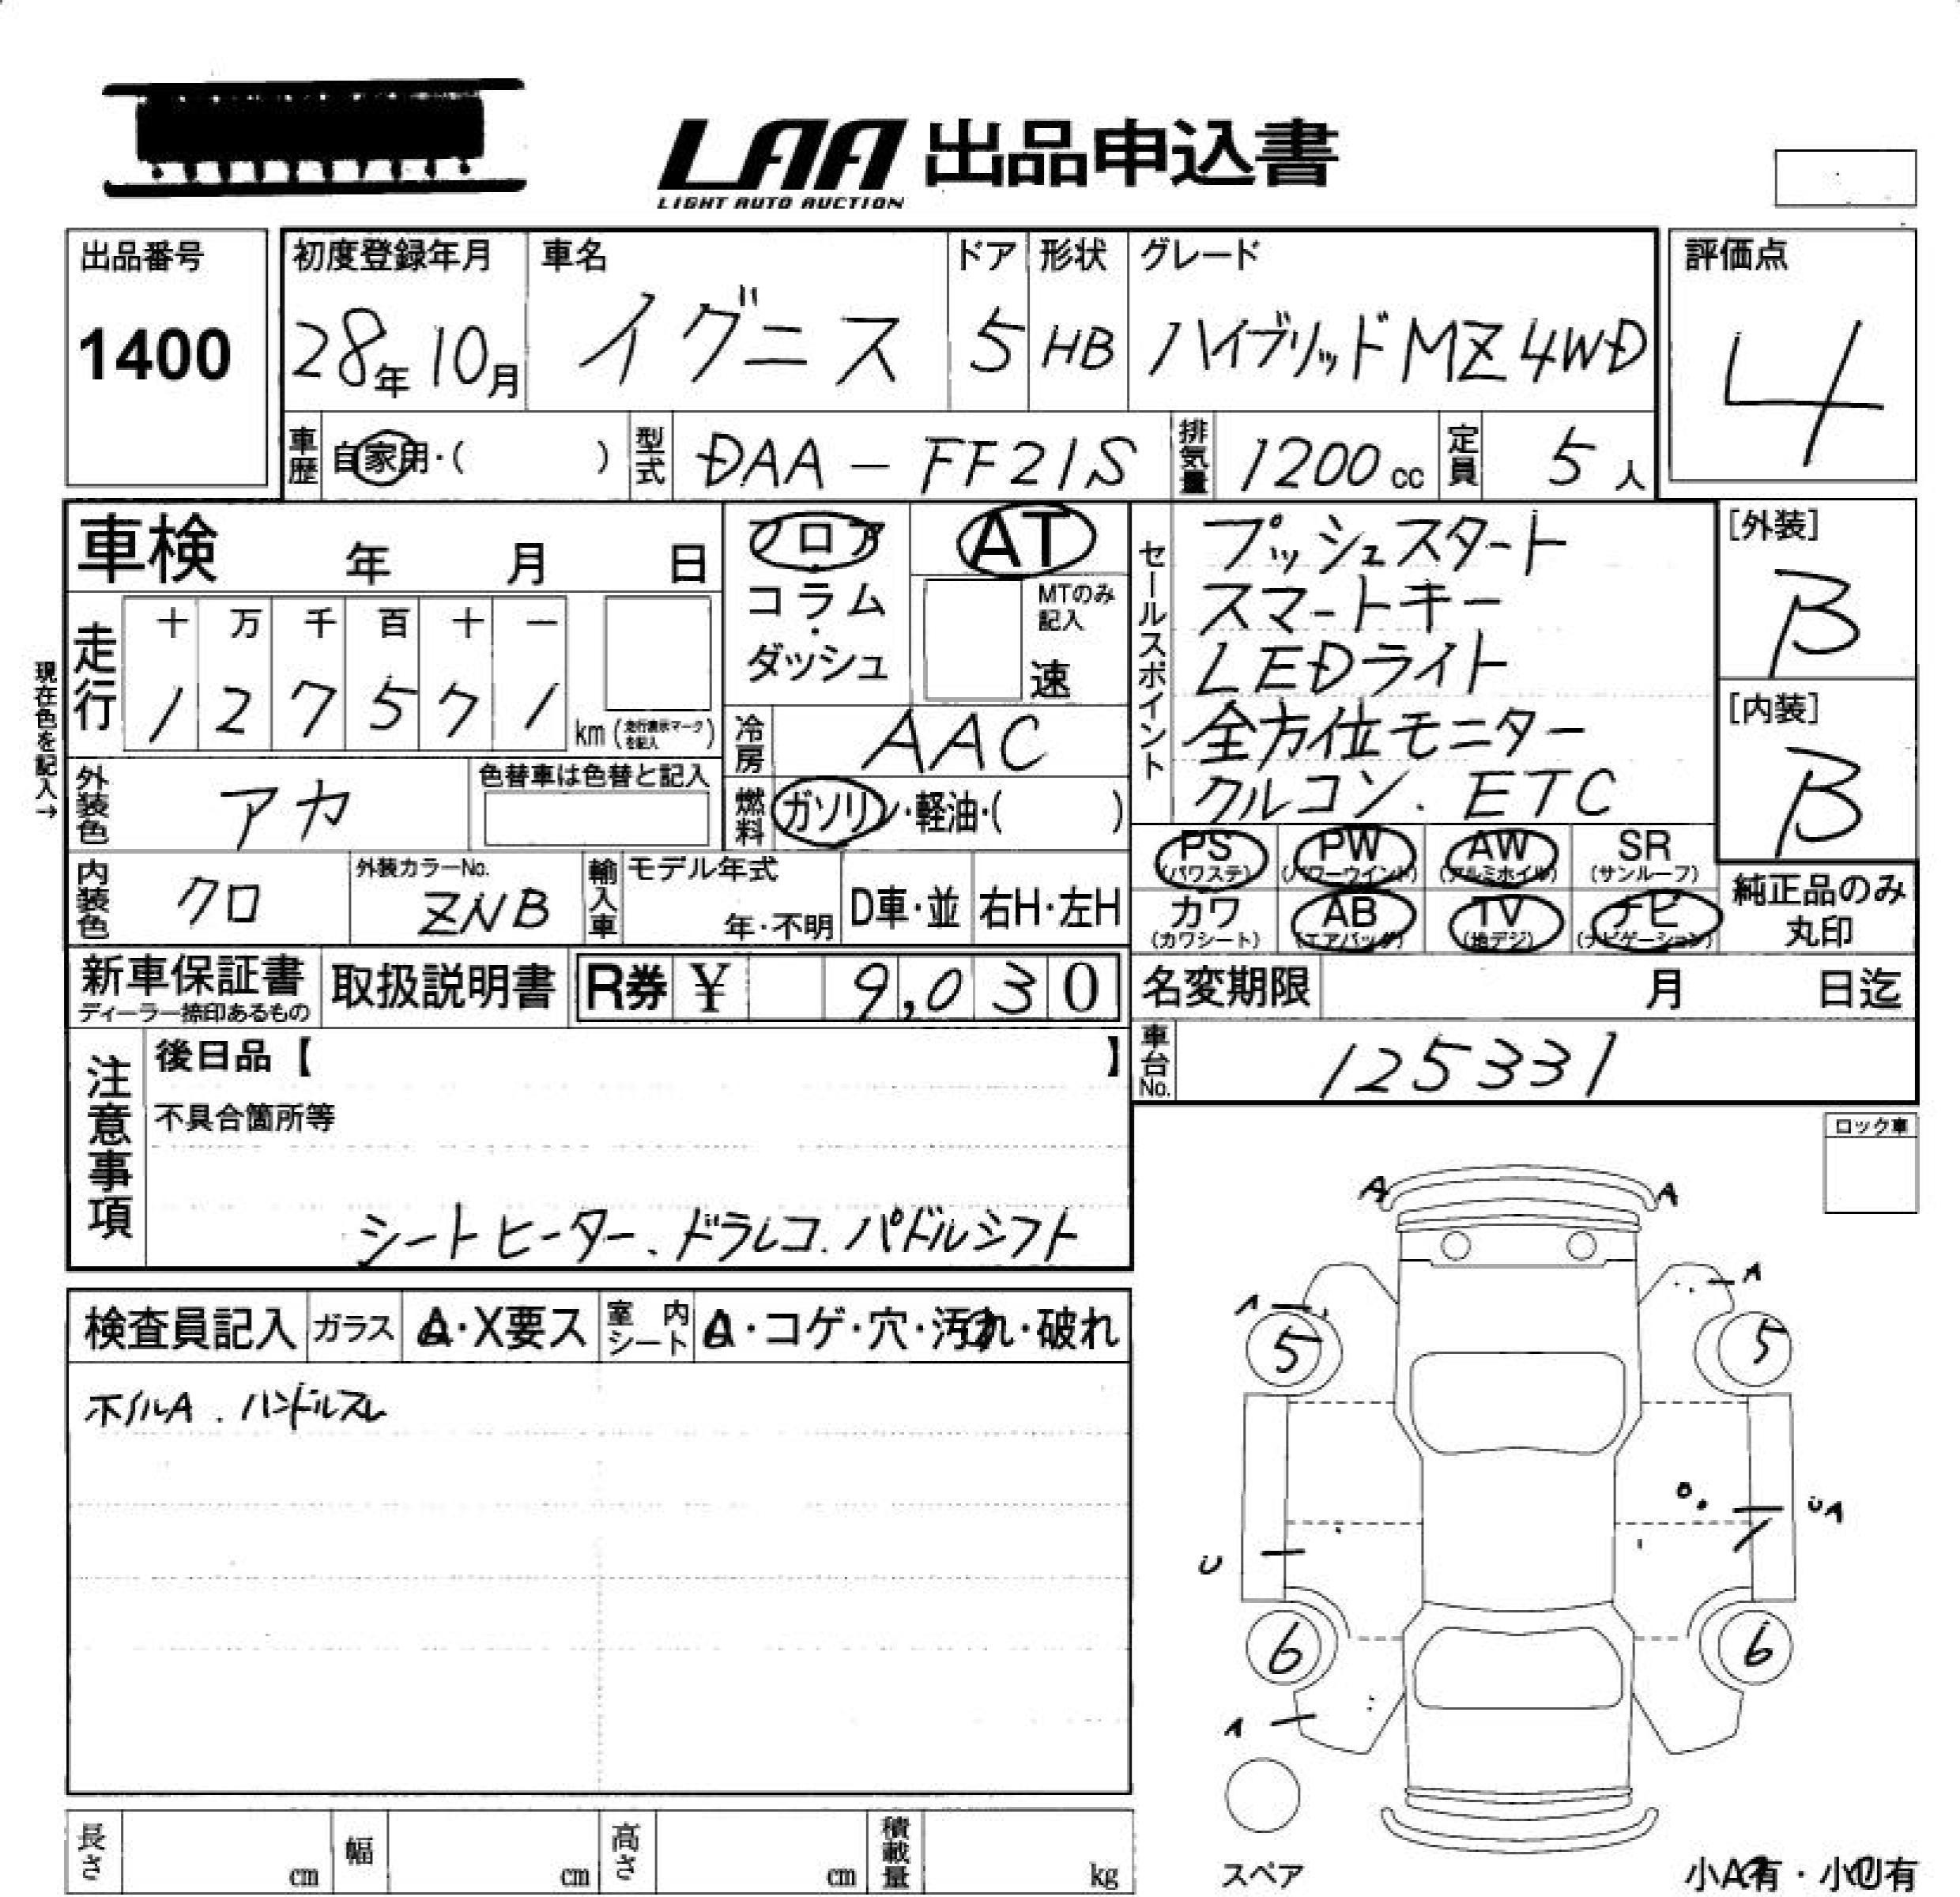 LAA 出品申込書
LIGHT AUTO AUCTION
出品番号
1400
初度登録年月
28年10月
車名
イグニス
ドア
5
形状
HB
グレード
ハイブリッドMZ 4WD
評価点
4
車歴
自家用・( )
型式
DAA-FF21S
排気量
1200cc
定員
5人
車検 年 月 日
フロア・コラム・ダッシュ
AT
MTのみ記入
速
セールスポイント
プッシュスタート
スマートキー
LEDライト
全方位モニター
クルコン. ETC
[外装]
B
[内装]
B
現在色を記入→
走行
十 万 千 百 十 一
1 2 7 5 7 1
km(走行表示マークを記入)
冷房
AAC
外装色
アカ
色替車は色替と記入
燃料
ガソリン・軽油・( )
内装色
クロ
外装カラーNo.
ZNB
輸入車
モデル年式
年・不明
D車・並
右H・左H
PS (パワステ)
PW (パワーウインド)
AW (アルミホイル)
SR (サンルーフ)
カワ (カワシート)
AB (エアバッグ)
TV (地デジ)
ナビ (ナビゲーション)
純正品のみ
丸印
新車保証書
ディーラー捺印あるもの
取扱説明書
R券 ¥ 9,030
名変期限 月 日迄
注意事項
後日品【 】
不具合箇所等
シートヒーター、ドラレコ. パドルシフト
車台No.
125331
ロック車
検査員記入
ガラス
A・X要ス
室内シート
A・コゲ・穴・汚れ・破れ
ホイルA. ハンドルスレ
A A
A A
5 5
U UA
6 6
A
スペア
長さ cm
幅 cm
高さ cm
積載量 kg
小A有・小U有